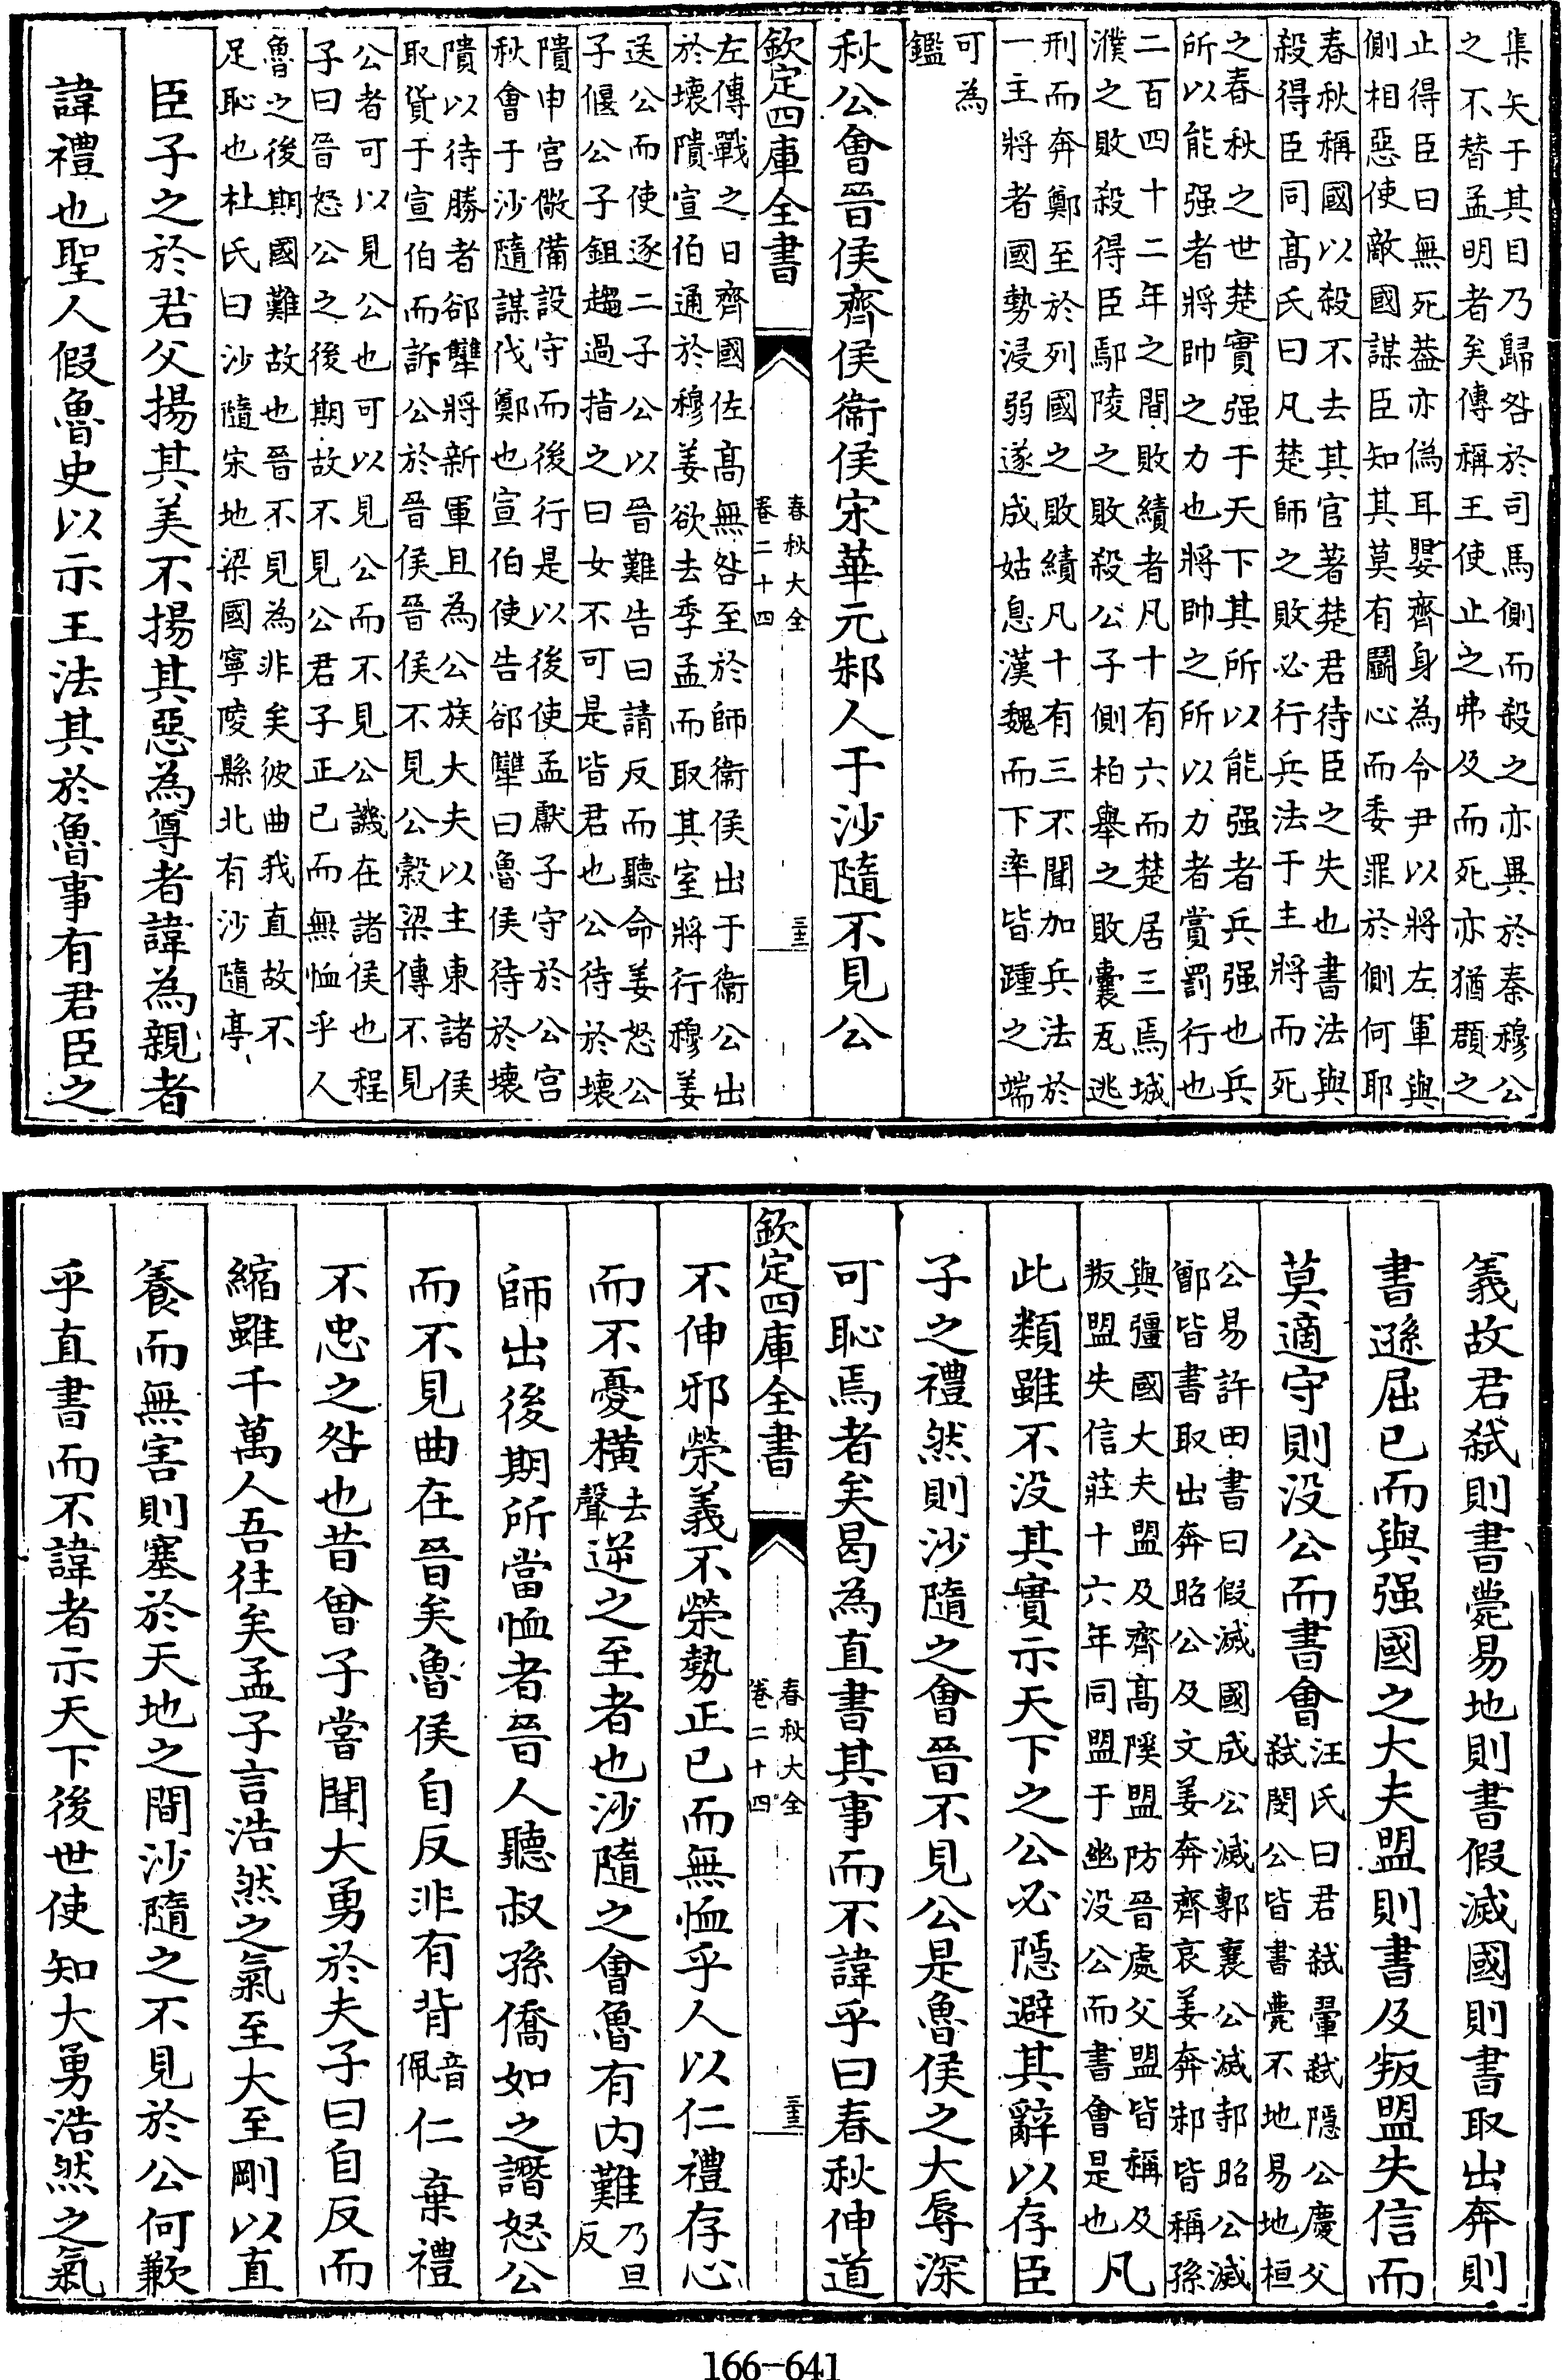 集矢于其目乃歸咎於司馬側而殺之亦異於秦穆公
之不替孟明者矣傳稱王使止之弗及而死亦猶頵之
止得臣曰無死葢亦偽耳嬰齊身為令尹以將左軍與
側相惡使敵國謀臣知其莫有鬭心而委罪於側何耶
春秋稱國以殺不去其官著楚君待臣之失也書法與
殺得臣同髙氏曰凡楚師之敗必行兵法于主將而死
之春秋之世楚實强于天下其所以能强者兵强也兵
所以能强者將帥之力也將帥之所以力者賞罰行也
二百四十二年之間敗績者凡十有六而楚居三焉城
濮之敗殺得臣鄢陵之敗殺公子側柏舉之敗囊瓦逃
刑而奔鄭至於列國之敗績凡十有三不聞加兵法於
一主將者國勢浸弱遂成姑息漢魏而下率皆踵之端
可為
鑑
秋公會晉侯齊侯衞侯宋華元邾人于沙隨不見公
欽定四庫全書
春秋大全
卷二十四
三十二
左傳戰之日齊國佐髙無咎至於師衞侯出于衞公出
於壞隤宣伯通於穆姜欲去季孟而取其室將行穆姜
送公而使逐二子公以晉難告曰請反而聽命姜怒公
子偃公子鉏趨過指之曰女不可是皆君也公待於壞
隤申宮儆備設守而後行是以後使孟獻子守於公宮
秋會于沙隨謀伐鄭也宣伯使告郤犫曰魯侯待於壞
隤以待勝者郤犫將新軍且為公族大夫以主東諸侯
取貨于宣伯而訴公於晉侯晉侯不見公穀梁傳不見
公者可以見公也可以見公而不見公譏在諸侯也程
子曰晉怒公之後期故不見公君子正已而無恤乎人
魯之後期國難故也晉不見為非矣彼曲我直故不
足恥也杜氏曰沙隨宋地梁國寧陵縣北有沙隨亭
臣子之於君父揚其美不揚其惡為尊者諱為親者
諱禮也聖人假魯史以示王法其於魯事有君臣之
義故君弑則書薨易地則書假滅國則書取出奔則
書遜屈已而與强國之大夫盟則書及叛盟失信而
莫適守則没公而書會
汪氏曰君弑翬弑隱公慶父
弑閔公皆書薨不地易地桓
公易許田書曰假滅國成公滅鄟襄公滅邿昭公滅
鄫皆書取出奔昭公及文姜奔齊哀姜奔邾皆稱孫
與彊國大夫盟及齊髙傒盟防晉處父盟皆稱及
叛盟失信莊十六年同盟于幽没公而書會是也
凡
此類雖不没其實示天下之公必隱避其辭以存臣
子之禮然則沙隨之會晉不見公是魯侯之大辱深
可恥焉者矣曷為直書其事而不諱乎曰春秋伸道
欽定四庫全書
春秋大全
卷二十四
三十三
不伸邪榮義不榮勢正已而無恤乎人以仁禮存心
而不憂橫去聲逆之至者也沙隨之會魯有内難乃旦反
師出後期所當恤者晉人聽叔孫僑如之譖怒公
而不見曲在晉矣魯侯自反非有背音佩仁棄禮
不忠之咎也昔曾子嘗聞大勇於夫子曰自反而
縮雖千萬人吾往矣孟子言浩然之氣至大至剛以直
養而無害則塞於天地之間沙隨之不見於公何歉
乎直書而不諱者示天下後世使知大勇浩然之氣
166-641